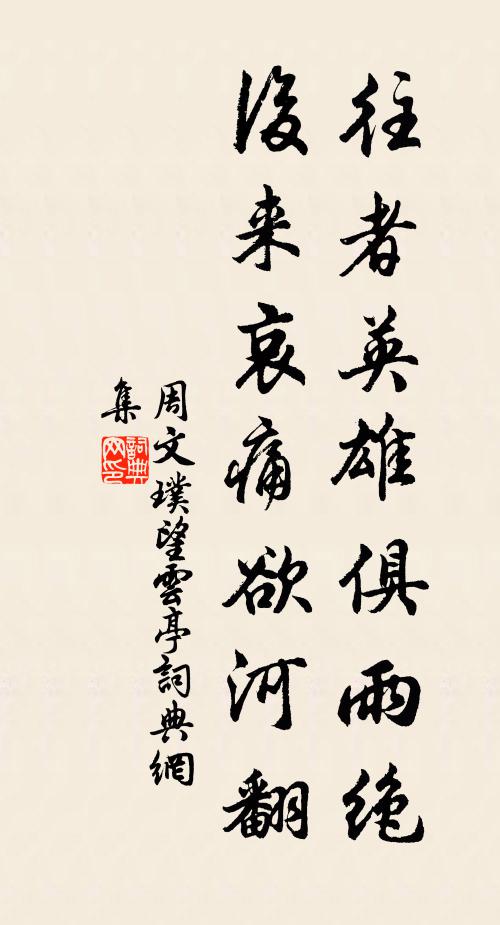 往者英雄俱雨绝
後来哀痛欲河翻
周文璞望雲亭詞典網
集
詞典網印